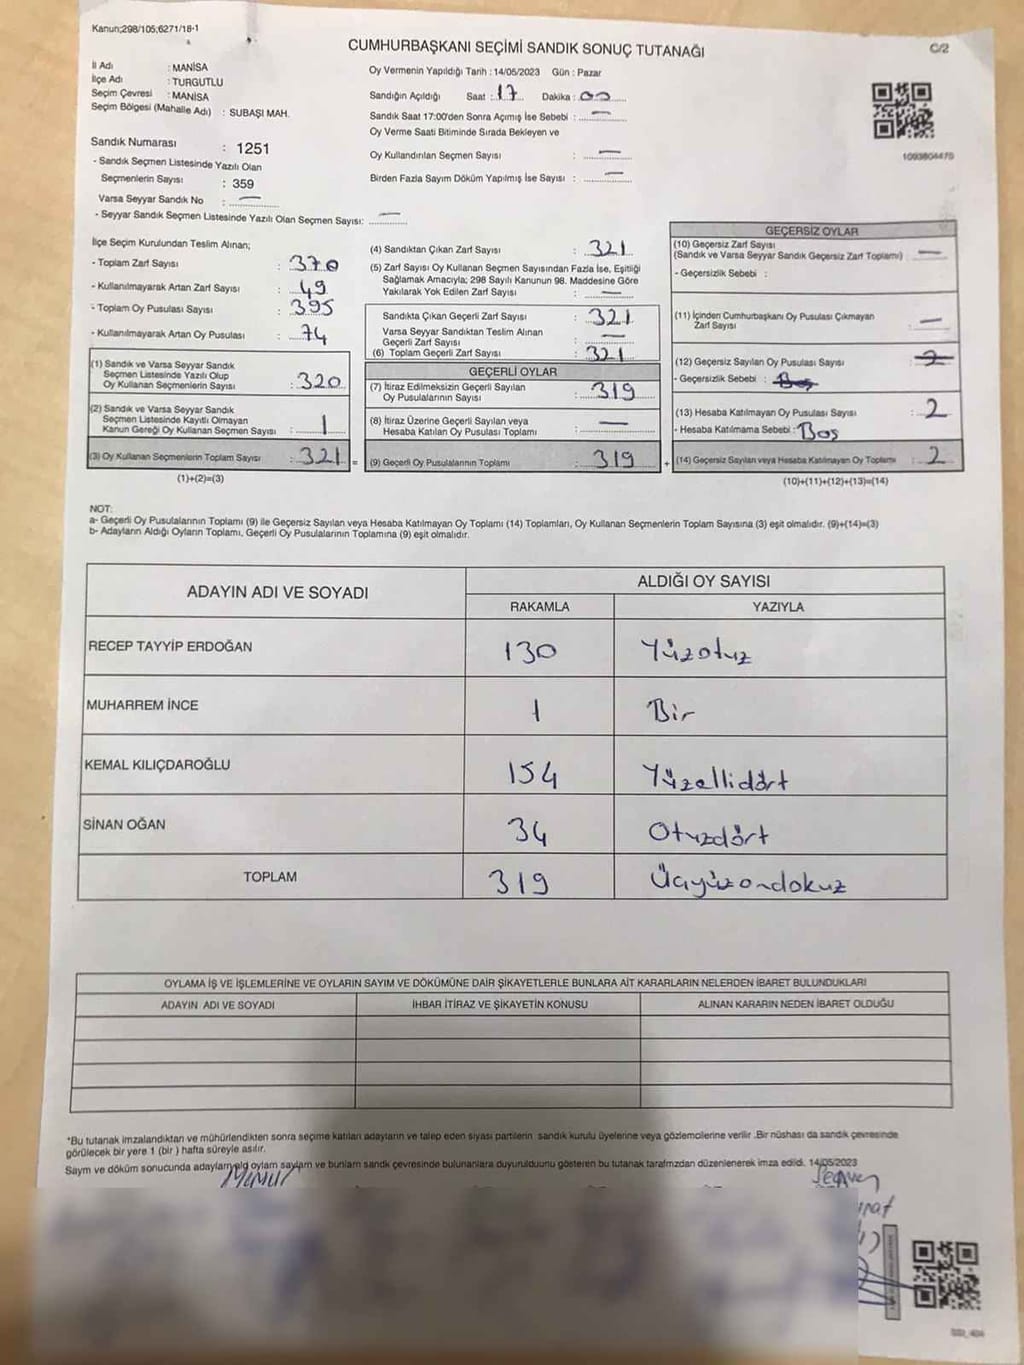 Kanun;298/105;6271/18-1
CUMHURBAŞKANI SEÇİMİ SANDIK SONUÇ TUTANAĞI
C/2
İl Adı : MANİSA
İlçe Adı : TURGUTLU
Seçim Çevresi : MANİSA
Seçim Bölgesi (Mahalle Adı) : SUBAŞI MAH.
Sandık Numarası : 1251
- Sandık Seçmen Listesinde Yazılı Olan
Seçmenlerin Sayısı : 359
Varsa Seyyar Sandık No : —
- Seyyar Sandık Seçmen Listesinde Yazılı Olan Seçmen Sayısı: —
Oy Vermenin Yapıldığı Tarih : 14/05/2023 Gün : Pazar
Sandığın Açıldığı Saat : 17 Dakika : 00
Sandık Saat 17:00'den Sonra Açımış İse Sebebi : —
Oy Verme Saati Bitiminde Sırada Bekleyen ve
Oy Kullandırılan Seçmen Sayısı : —
Birden Fazla Sayım Döküm Yapılmış İse Sayısı : —
1093804470
İlçe Seçim Kurulundan Teslim Alınan;
- Toplam Zarf Sayısı : 370
- Kullanılmayarak Artan Zarf Sayısı : 49
- Toplam Oy Pusulası Sayısı : 395
- Kullanılmayarak Artan Oy Pusulası : 74
(1) Sandık ve Varsa Seyyar Sandık
Seçmen Listesinde Yazılı Olup
Oy Kullanan Seçmenlerin Sayısı : 320
(2) Sandık ve Varsa Seyyar Sandık
Seçmen Listesinde Kayıtlı Olmayan
Kanun Gereği Oy Kullanan Seçmen Sayısı : 1
(3) Oy Kullanan Seçmenlerin Toplam Sayısı : 321
(1)+(2)=(3)
(4) Sandıktan Çıkan Zarf Sayısı : 321
(5) Zarf Sayısı Oy Kullanan Seçmen Sayısından Fazla İse, Eşitliği
Sağlamak Amacıyla; 298 Sayılı Kanunun 98. Maddesine Göre
Yakılarak Yok Edilen Zarf Sayısı : —
Sandıkta Çıkan Geçerli Zarf Sayısı : 321
Varsa Seyyar Sandıktan Teslim Alınan
Geçerli Zarf Sayısı : —
(6) Toplam Geçerli Zarf Sayısı : 321
GEÇERLİ OYLAR
(7) İtiraz Edilmeksizin Geçerli Sayılan
Oy Pusulalarının Sayısı : 319
(8) İtiraz Üzerine Geçerli Sayılan veya
Hesaba Katılan Oy Pusulası Toplamı : —
= (9) Geçerli Oy Pusulalarının Toplamı : 319 +
GEÇERSİZ OYLAR
(10) Geçersiz Zarf Sayısı
(Sandık ve Varsa Seyyar Sandık Geçersiz Zarf Toplamı) : —
- Geçersizlik Sebebi :
(11) İçinden Cumhurbaşkanı Oy Pusulası Çıkmayan
Zarf Sayısı : —
(12) Geçersiz Sayılan Oy Pusulası Sayısı : 2
- Geçersizlik Sebebi : Boş
(13) Hesaba Katılmayan Oy Pusulası Sayısı : 2
- Hesaba Katılmama Sebebi : Boş
(14) Geçersiz Sayılan veya Hesaba Katılmayan Oy Toplamı : 2
(10)+(11)+(12)+(13)=(14)
NOT:
a- Geçerli Oy Pusulalarının Toplamı (9) ile Geçersiz Sayılan veya Hesaba Katılmayan Oy Toplamı (14) Toplamları, Oy Kullanan Seçmenlerin Toplam Sayısına (3) eşit olmalıdır. (9)+(14)=(3)
b- Adayların Aldığı Oyların Toplamı, Geçerli Oy Pusulalarının Toplamına (9) eşit olmalıdır.
ADAYIN ADI VE SOYADI
ALDIĞI OY SAYISI
RAKAMLA YAZIYLA
RECEP TAYYİP ERDOĞAN 130 Yüzotuz
MUHARREM İNCE 1 Bir
KEMAL KILIÇDAROĞLU 154 Yüzellidört
SİNAN OĞAN 34 Otuzdört
TOPLAM 319 Üçyüzondokuz
OYLAMA İŞ VE İŞLEMLERİNE VE OYLARIN SAYIM VE DÖKÜMÜNE DAİR ŞİKAYETLERLE BUNLARA AİT KARARLARIN NELERDEN İBARET BULUNDUKLARI
ADAYIN ADI VE SOYADI İHBAR İTİRAZ VE ŞİKAYETİN KONUSU ALINAN KARARIN NEDEN İBARET OLDUĞU
*Bu tutanak imzalandıktan ve mühürlendikten sonra seçime katılan adayların ve talep eden siyasi partilerin sandık kurulu üyelerine veya gözlemcilerine verilir .Bir nüshası da sandık çevresinde
görülecek bir yere 1 (bir ) hafta süreyle asılır.
Saym ve döküm sonucunda adaylarn ald oylarn saylarn ve bunlarn sandk çevresinde bulunanlara duyurulduunu gösteren bu tutanak tarafmzdan düzenlenerek imza edildi. 14/05/2023
Memur